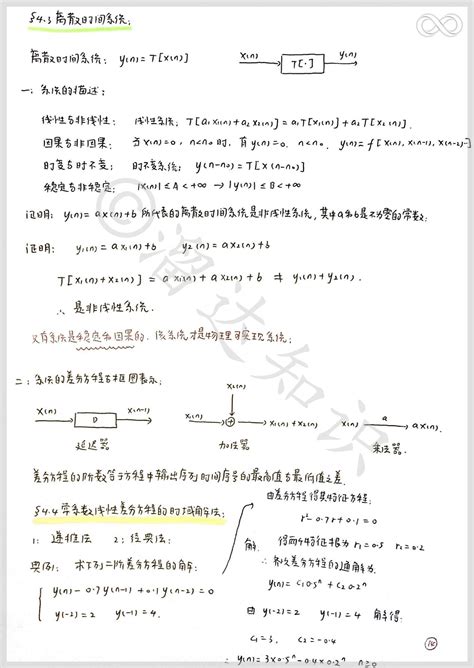 §4.3 离散时间系统:
离散时间系统: y(n)=T[x(n)]
x(n) T[·] y(n)
一: 系统的描述:
线性与非线性: 线性系统: T[a₁x₁(n)+a₂x₂(n)]=a₁T[x₁(n)]+a₂T[x₂(n)].
因果与非因果: 若x(n)=0, n<n₀时, 有y(n)=0, n<n₀. y(n)=f[x(n), x(n-1), x(n-2)…]
时变与时不变: 时不变系统: y(n-n₀)=T[x(n-n₀)]
稳定与非稳定: |x(n)|≤A<+∞→|y(n)|≤B<+∞
证明: y(n)=ax(n)+b 所代表的离散时间系统是非线性系统, 其中a和b是不为零的常数:
证明: y₁(n)=ax₁(n)+b y₂(n)=ax₂(n)+b
T[x₁(n)+x₂(n)]=ax₁(n)+ax₂(n)+b≠y₁(n)+y₂(n).
∴是非线性系统.
只有系统是稳定和因果的, 该系统才是物理可实现系统:
二: 系统的差分方程与框图表示:
x(n) D x(n-1)
延迟器
x₂(n)
x₁(n) ⊕ x₁(n)+x₂(n)
加法器
x(n) a ax(n).
乘法器
差分方程的阶数等于方程中输出序列时间序号的最高值与最低值之差.
§4.4 常系数线性差分方程的时域解法:
1: 递推法 2: 经典法:
典例: 求下列二阶差分方程的解:
y(n)-0.7y(n-1)+0.1y(n-2)=0
y(-2)=2 y(-1)=4.
由差分方程得其特征方程:
r²-0.7r+0.1=0
解 得两特征根为 r₁=0.5 r₂=0.2
∴齐次差分方程的通解为:
y(n)=c₁0.5ⁿ+c₂0.2ⁿ
由 y(-2)=2 y(-1)=4 解得:
c₁=3, c₂=-0.4
y(n)=3×0.5ⁿ-0.4×0.2ⁿ n≥0
©溜达知识